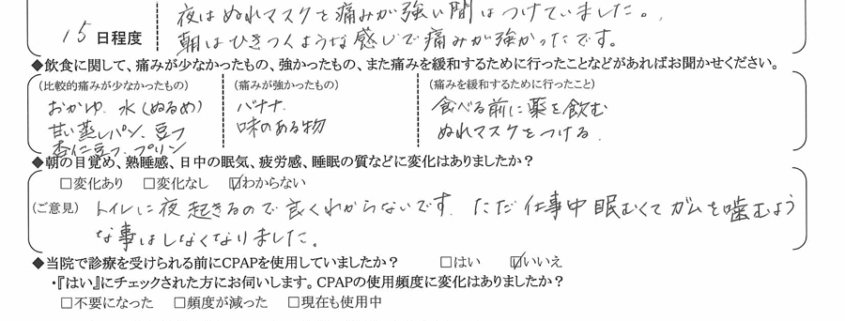 夜はぬれマスクを痛みが強い間はつけていました。
15日程度 朝はひきつくような感じで痛みが強かったです。
◆飲食に関して、痛みが少なかったもの、強かったもの、また痛みを緩和するために行ったことなどがあればお聞かせください。
(比較的痛みが少なかったもの) (痛みが強かったもの) (痛みを緩和するために行ったこと)
おかゆ. 水(ぬるめ) バナナ. 食べる前に薬を飲む
甘い蒸しパン、豆フ 味のある物 ぬれマスクをつける.
杏仁豆フ.プリン
◆朝の目覚め、熟睡感、日中の眠気、疲労感、睡眠の質などに変化はありましたか?
□変化あり □変化なし ☑わからない
(ご意見) トイレに夜起きるので良くわからないです. ただ仕事中眠むくてガムを噛むよう
な事はしなくなりました。
◆当院で診療を受けられる前にCPAPを使用していましたか? □はい ☑いいえ
・『はい』にチェックされた方にお伺いします。CPAPの使用頻度に変化はありましたか?
□不要になった □頻度が減った □現在も使用中